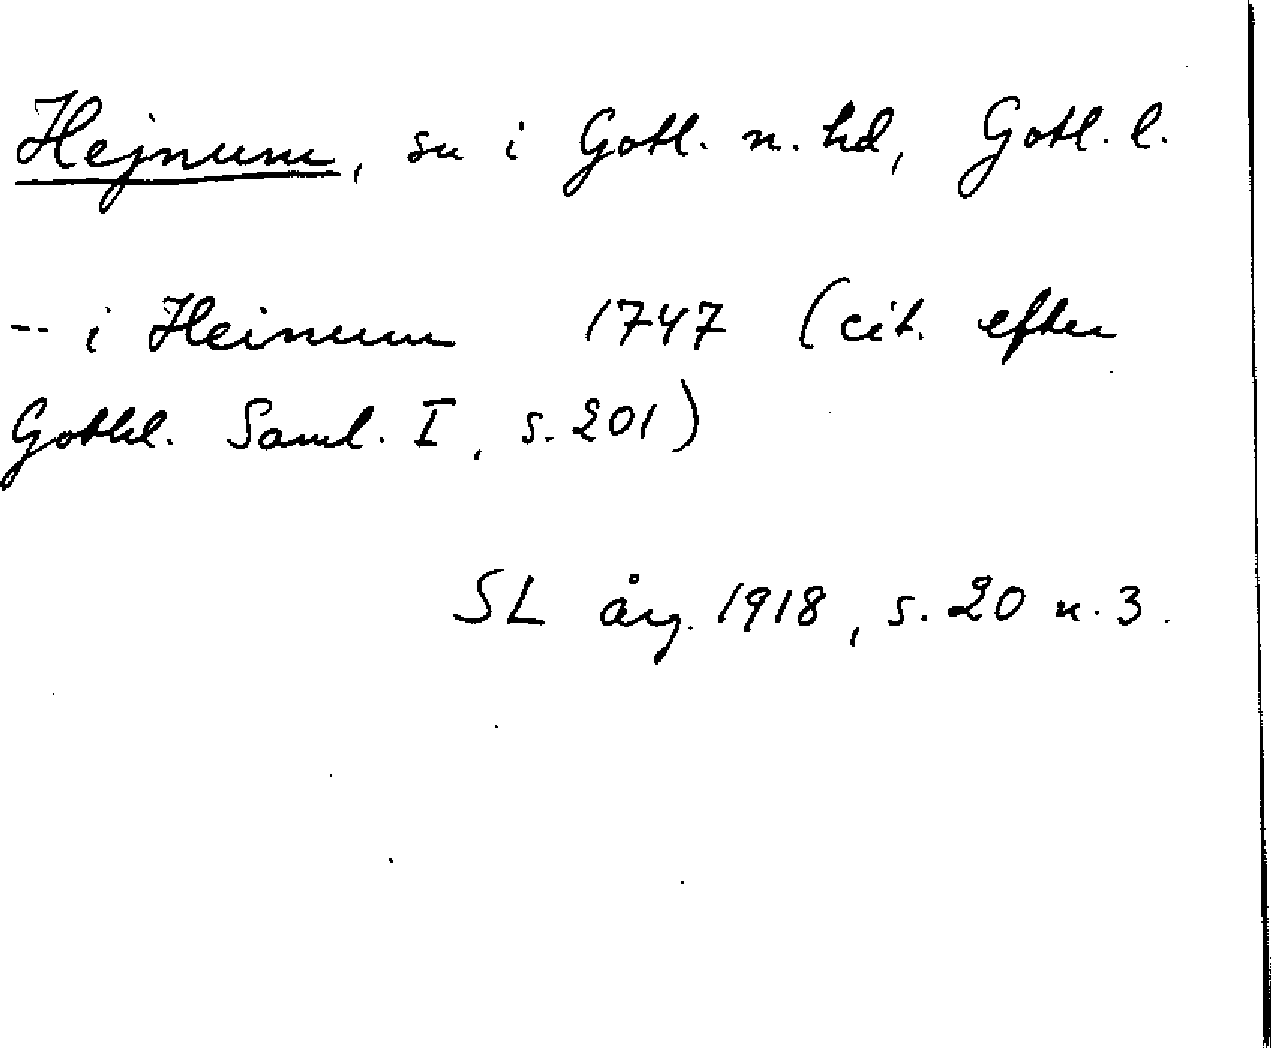 Hejnum, sn i Gotl. n. hd, Gotl. l.
-- i Heinum 1747 (cit. efter
Gothl. Saml. I, s. 201)
SL årg. 1918, s. 20 n. 3.